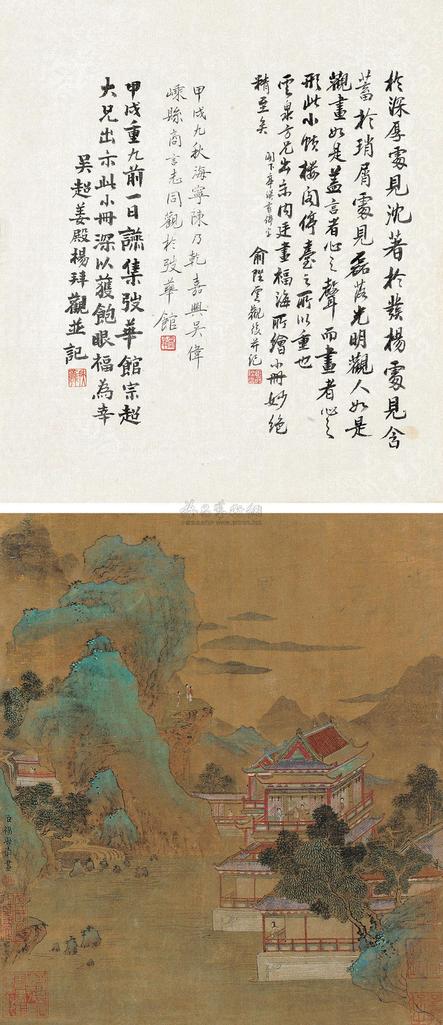 於深厚處見沈著於發揚處見含
蓄於瑣屑處見磊落光明觀人如是
觀畫如是蓋言者心之聲而畫者心之
形此小幀樓閣停臺之所以重也
雲泉方兄出示內廷畫福海所繪小冊妙絕
精至矣
俞陛雲觀後并記
甲戌九秋海寧陳乃乾嘉興吳偉
嵊縣商言志同觀於弢華館
甲戌重九前一日讌集弢華館宗超
大兄出示此小冊深以獲飽眼福為幸
吳超姜殿楊拜觀並記